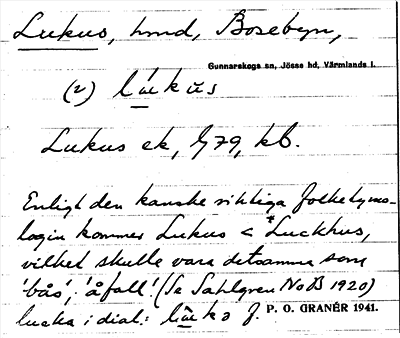 Lukus, hmd, Bosebyn,
Gunnarskogs sn, Jösse hd, Värmlands l.
(2) lukus
Lukus ek, G 79, kb.
Enligt den kanske riktiga folketymo-
login kommer Lukus < *Luckhus,
vilket skulle vara detsamma som
'bås', 'åfall'. (Se Sahlgren NoB 1920)
lucka i dial: f. P. O. GRANÉR 1941.